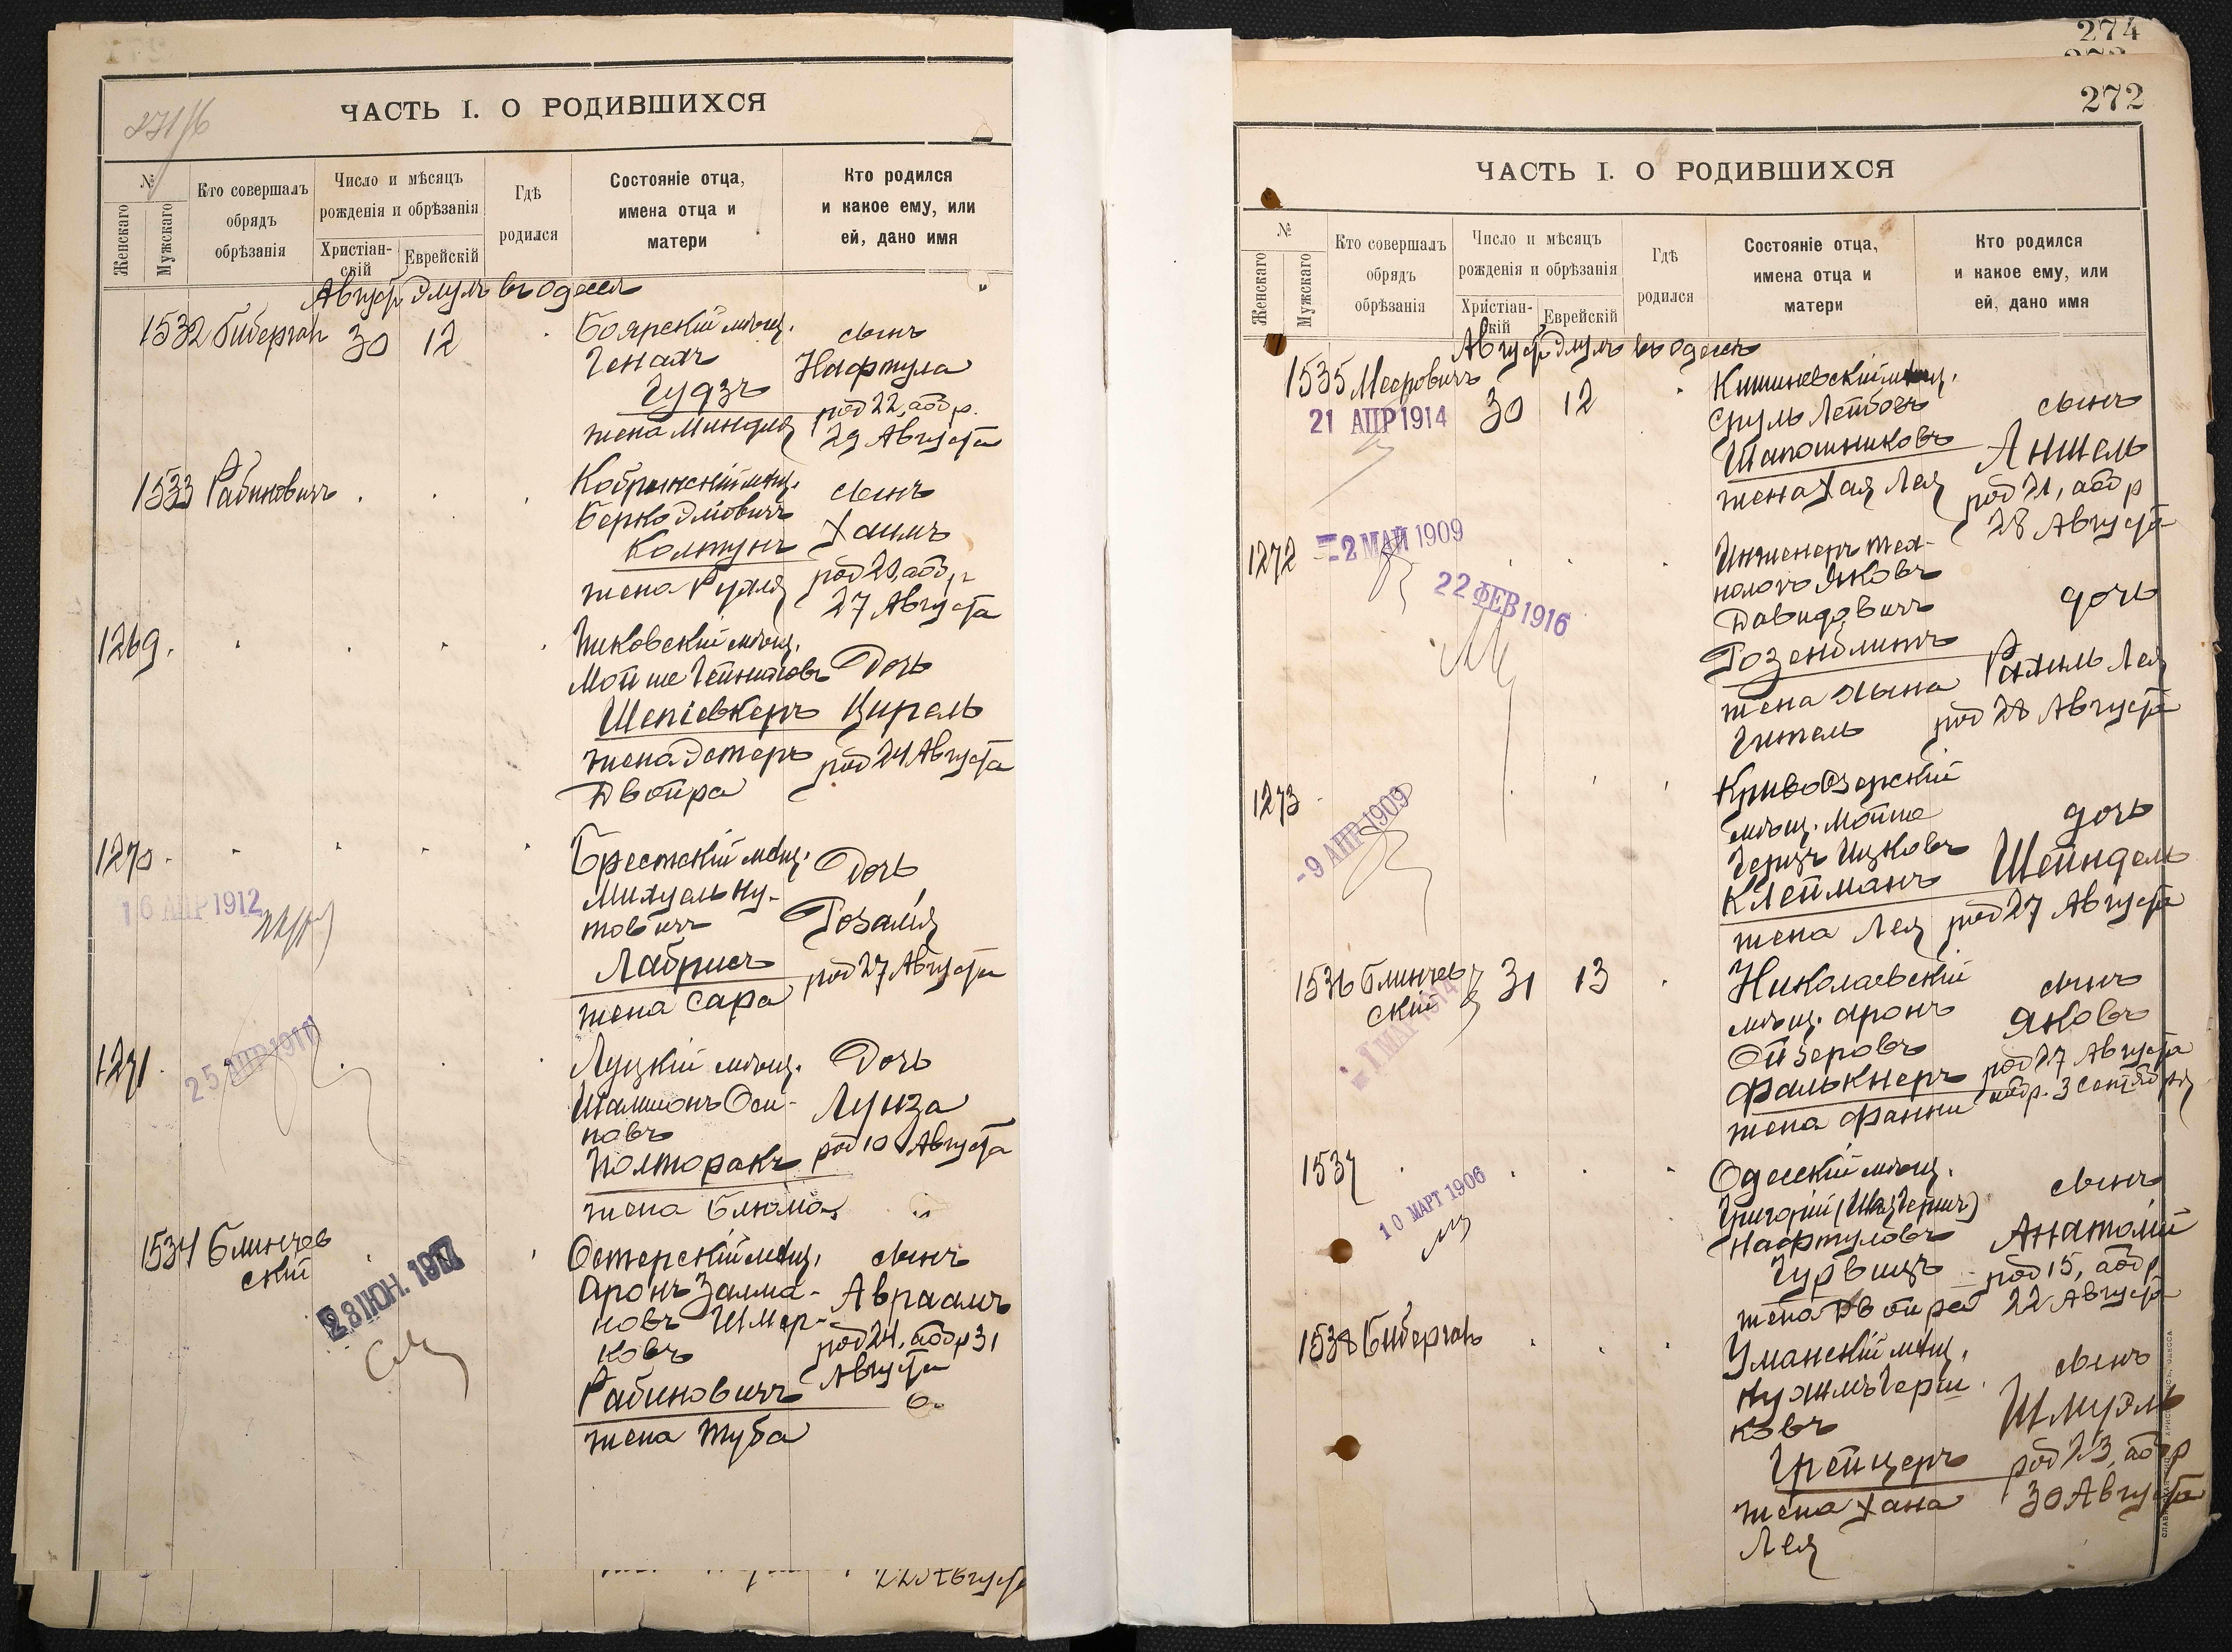 271/б
ЧАСТЬ I. О РОДИВШИХСЯ
№
Женскаго
Мужскаго
Кто совершалъ
обрядъ
обрѣзанія
Число и мѣсяцъ
рожденія и обрѣзанія
Христіан-
скій
Еврейскій
Гдѣ
родился
Состояніе отца,
имена отца и
матери
Кто родился
и какое ему, или
ей, дано имя
Август Элулъ въ Одессѣ
1532 Биберганъ 30 12
Боярскій мѣщ.
Генахъ
Гудзъ
жена Миндля
сынъ
Нафтула
род 22, обр.
29 Августа
1533 Рабиновичъ
Кобринскій мѣщ.
Берко Эліовичъ
Колтунъ
жена Рухля
сынъ
Хаимъ
род 20, обр
27 Августа
1269.
Пиковскій мѣщ.
Мойше
Шепіевкеръ
жена Эстеръ
Двойра
Дочь
Цирель
род 24 Августа
1270
16 АПР 1912
Брестскій мѣщ.
Михуель Ну-
товичъ
Лабрисъ
жена Сара
Дочь
Розалія
род 27 Августа
1271
25 АПР 1911
Луцкій мѣщ.
Шамшонъ Оси-
повъ
Полторакъ
жена Блюма
Дочь
Луиза
род 10 Августа
1534 Блинчев
скій
28 ІЮН. 1917
Остерскій мѣщ.
Аронъ Залма-
новъ Шмер-
ковъ
Рабиновичъ
жена Туба
сынъ
Авраамъ
род 24, обр 31
Августа
22 Августа
274
272
ЧАСТЬ I. О РОДИВШИХСЯ
№
Женскаго
Мужскаго
Кто совершалъ
обрядъ
обрѣзанія
Число и мѣсяцъ
рожденія и обрѣзанія
Христіан-
скій
Еврейскій
Гдѣ
родился
Состояніе отца,
имена отца и
матери
Кто родился
и какое ему, или
ей, дано имя
Август Элулъ въ Одессѣ
1535 Мееровичъ 30 12
21 АПР 1914
Кишиневскій мѣщ.
Сруль Лейбовъ
Шапошниковъ
жена Хая Лея
сынъ
Аншель
род 21, обр
28 Августа
1272
-2 МАЙ 1909
22 ФЕВ 1916
Инженеръ тех-
нологъ Яковъ
Давидовичъ
Розенблитъ
жена Хына
Гитель
дочь
Рахиль Лея
род 28 Августа
1273
-9 АПР 1909
Кривоозерскій
мѣщ. Мойше
Герцъ Ицковъ
Клейманъ
жена Лея
дочь
Шейндель
род 27 Августа
1536 Блинчев
скій 31 13
-1 МАР 1914
Николаевскій
мѣщ. Аронъ
Ойзеровъ
Фалькнеръ
жена Фанни
сынъ
Яковъ
род 27 Августа
обр. 3 Сентября
1537
10 МАРТ 1906
Одесскій мѣщ.
Григорій
Нафтуловъ
Гурвицъ
жена Двойра
сынъ
Анатолій
род 15, обр
22 Августа
1538 Биберганъ
Уманскій мѣщ.
Нухимъ Герш
ковъ
Грейцеръ
жена Хана
Лея
сынъ
Шмуэль
род 23, обр
30 Августа